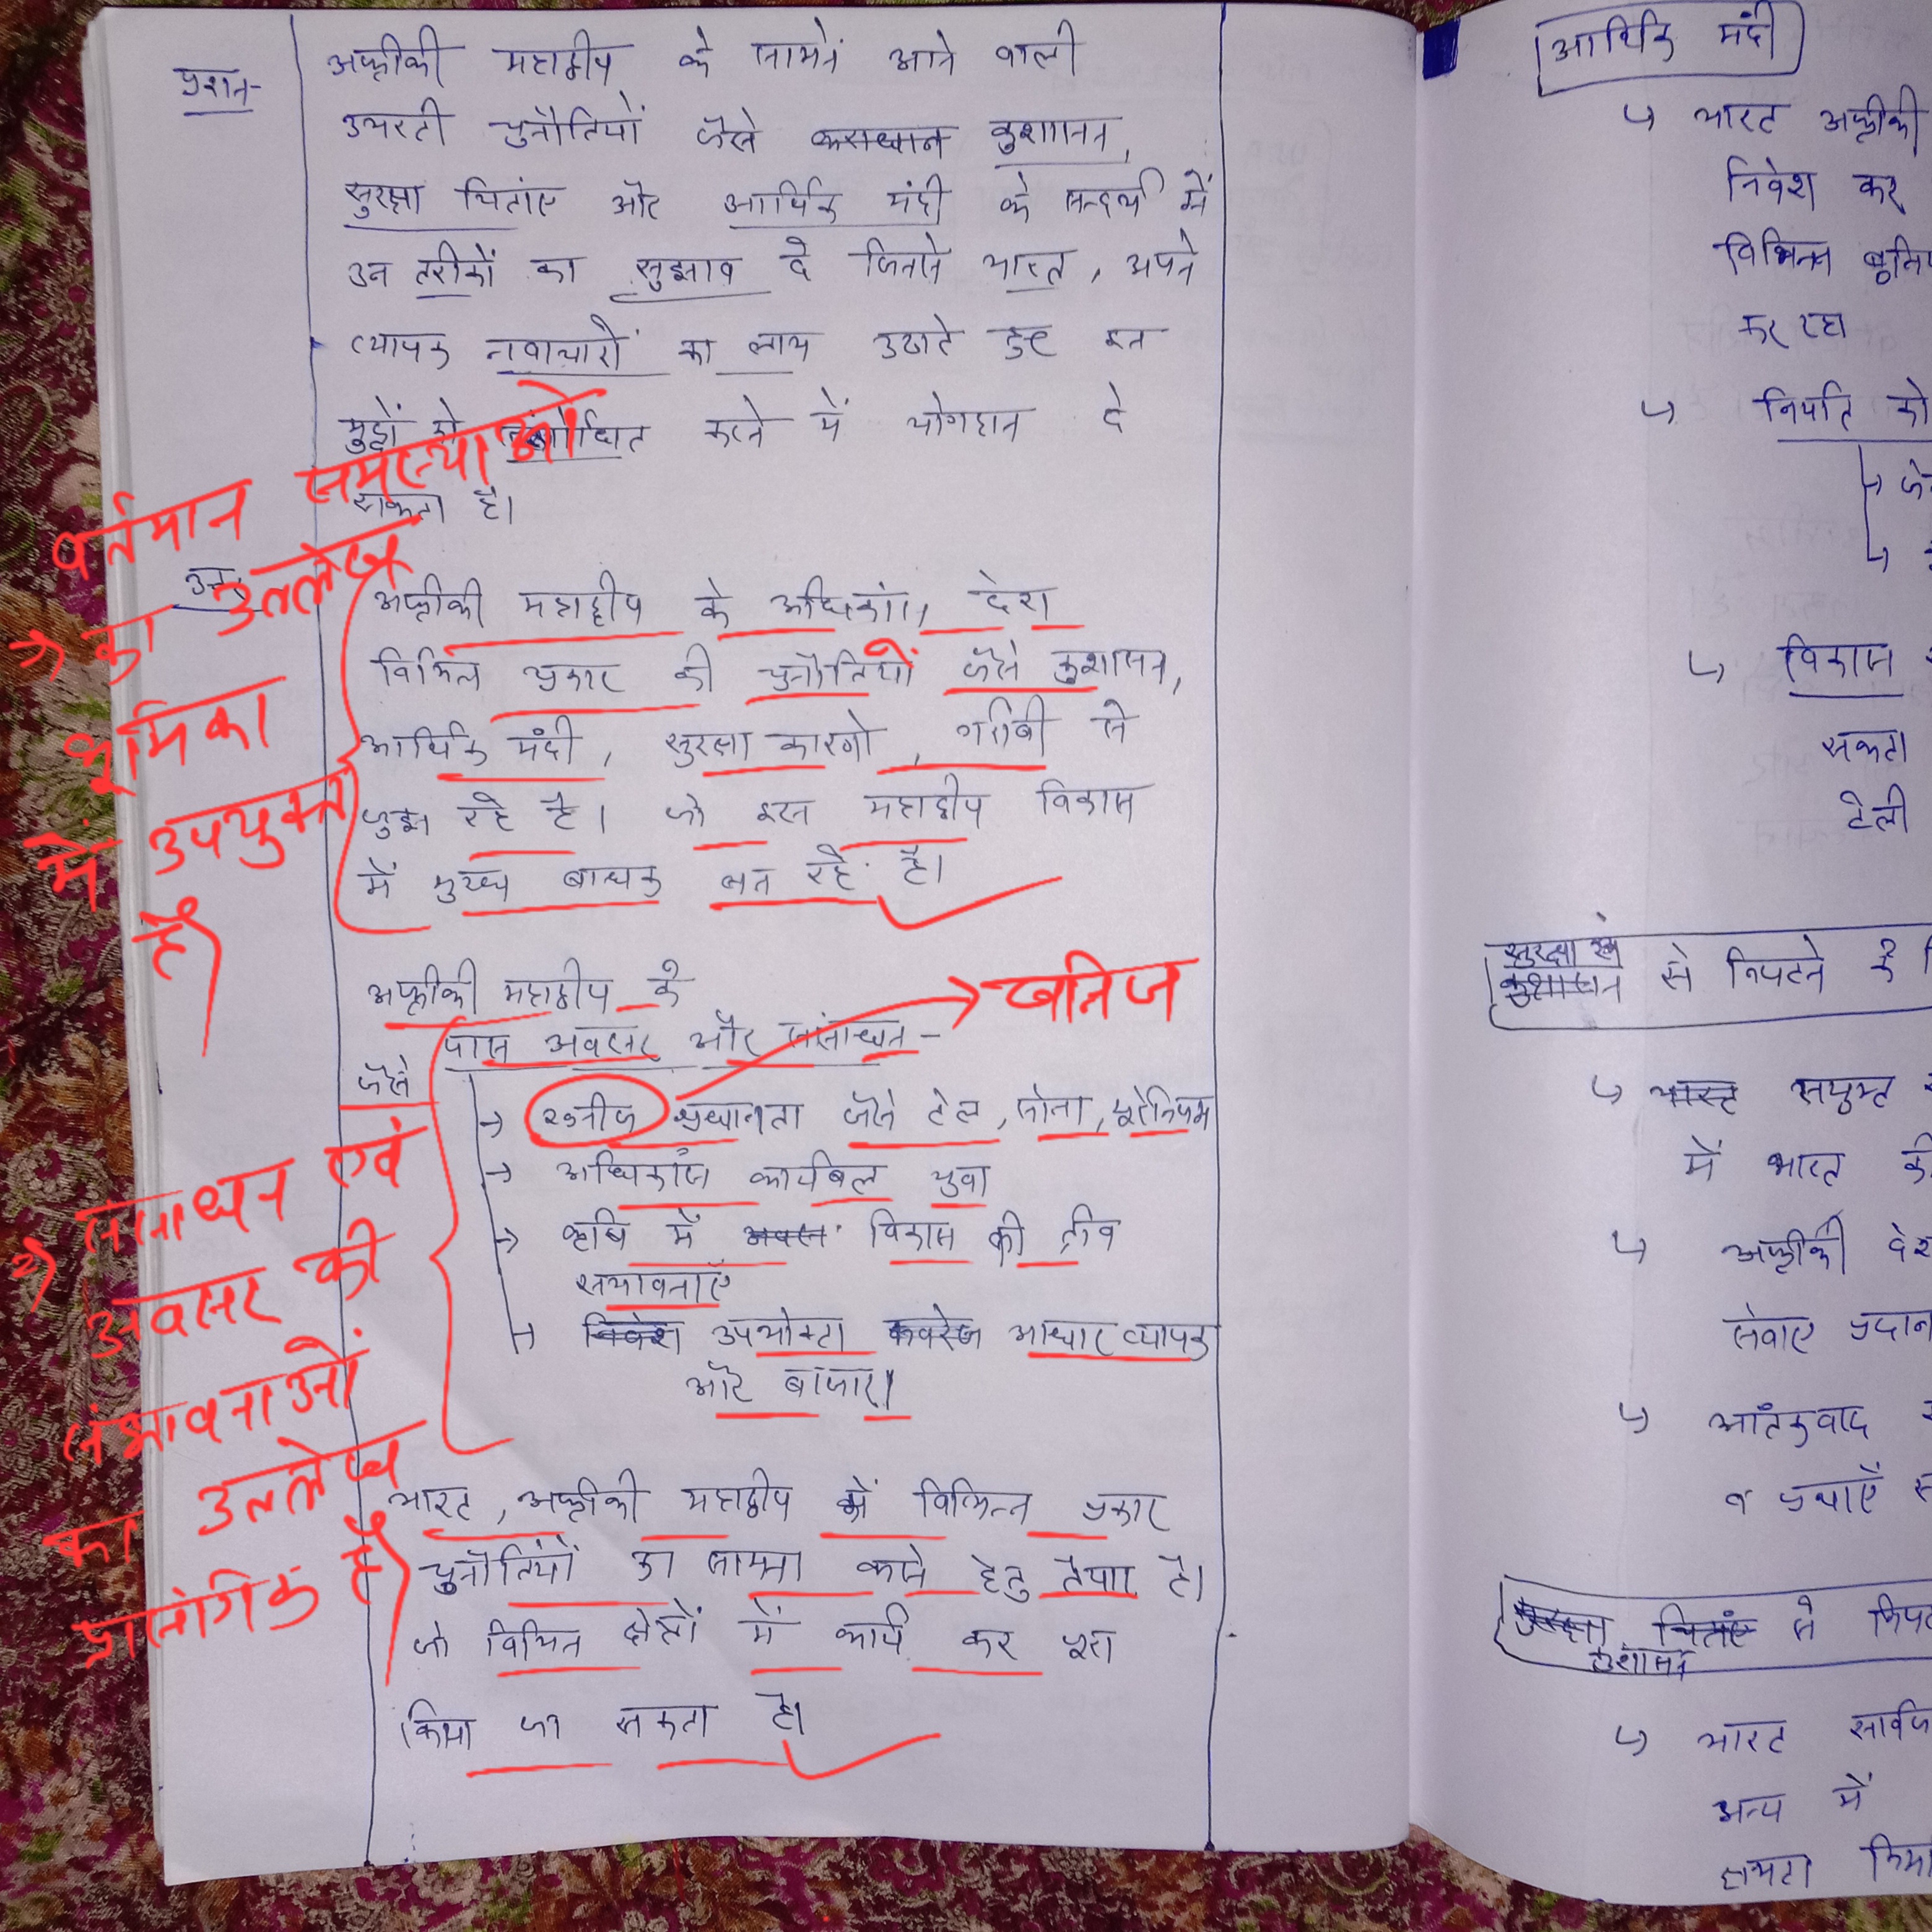 प्रश्न-
अफ्रीकी महाद्वीप के सामने आने वाली
उभरती चुनौतियों जैसे कुशासन,
सुरक्षा चिंताएं और आर्थिक मंदी के सन्दर्भ में
उन तरीकों का सुझाव दे जिनसे भारत, अपने
व्यापक नवाचारों का लाभ उठाते हुए इन
मुद्दों को संबोधित करने में योगदान दे
सकता है।
वर्तमान समस्याओं
का उल्लेख
भूमिका
में उपयुक्त
है
उत्तर
अफ्रीकी महाद्वीप के अधिकांश देश
विभिन्न प्रकार की चुनौतियों जैसे कुशासन,
आर्थिक मंदी, सुरक्षा कारणो, गरीबी से
जुझ रहे है। जो इस महाद्वीप विकास
में मुख्य बाधक बन रहे है।
अफ्रीकी महाद्वीप के
पास अवसर और संसाधन-
जैसे
→ खनीज प्रधानता जैसे तेल, सोना, यूरेनियम
खनिज
→ अधिकांश कार्यबल युवा
→ कृषि में विकास की तीव्र
सभावनाएँ
→ उपभोक्ता आधार व्यापक
और बाजार।
संसाधन एवं
अवसर की
संभावनाओं
का उल्लेख
प्रासंगिक है
भारत, अफ्रीकी महाद्वीप में विभिन्न प्रकार
चुनौतियों का सामना करने हेतु तैयार है।
जो विभिन्न क्षेत्रों में कार्य कर पूरा
किया जा सकता है।
आर्थिक मंदी
↳ भारत अफ्रीकी
निवेश कर
विभिन्न
कर रहा
↳ निर्यात को
↳ विकास
सकता
टेली
सुरक्षा
से निपटने के
↳ सयुक्त
में भारत की
↳ अफ्रीकी
सेवाए प्रदान
↳ आतंकवाद
व
कुशासन से
↳ भारत
अन्य में
क्षमता